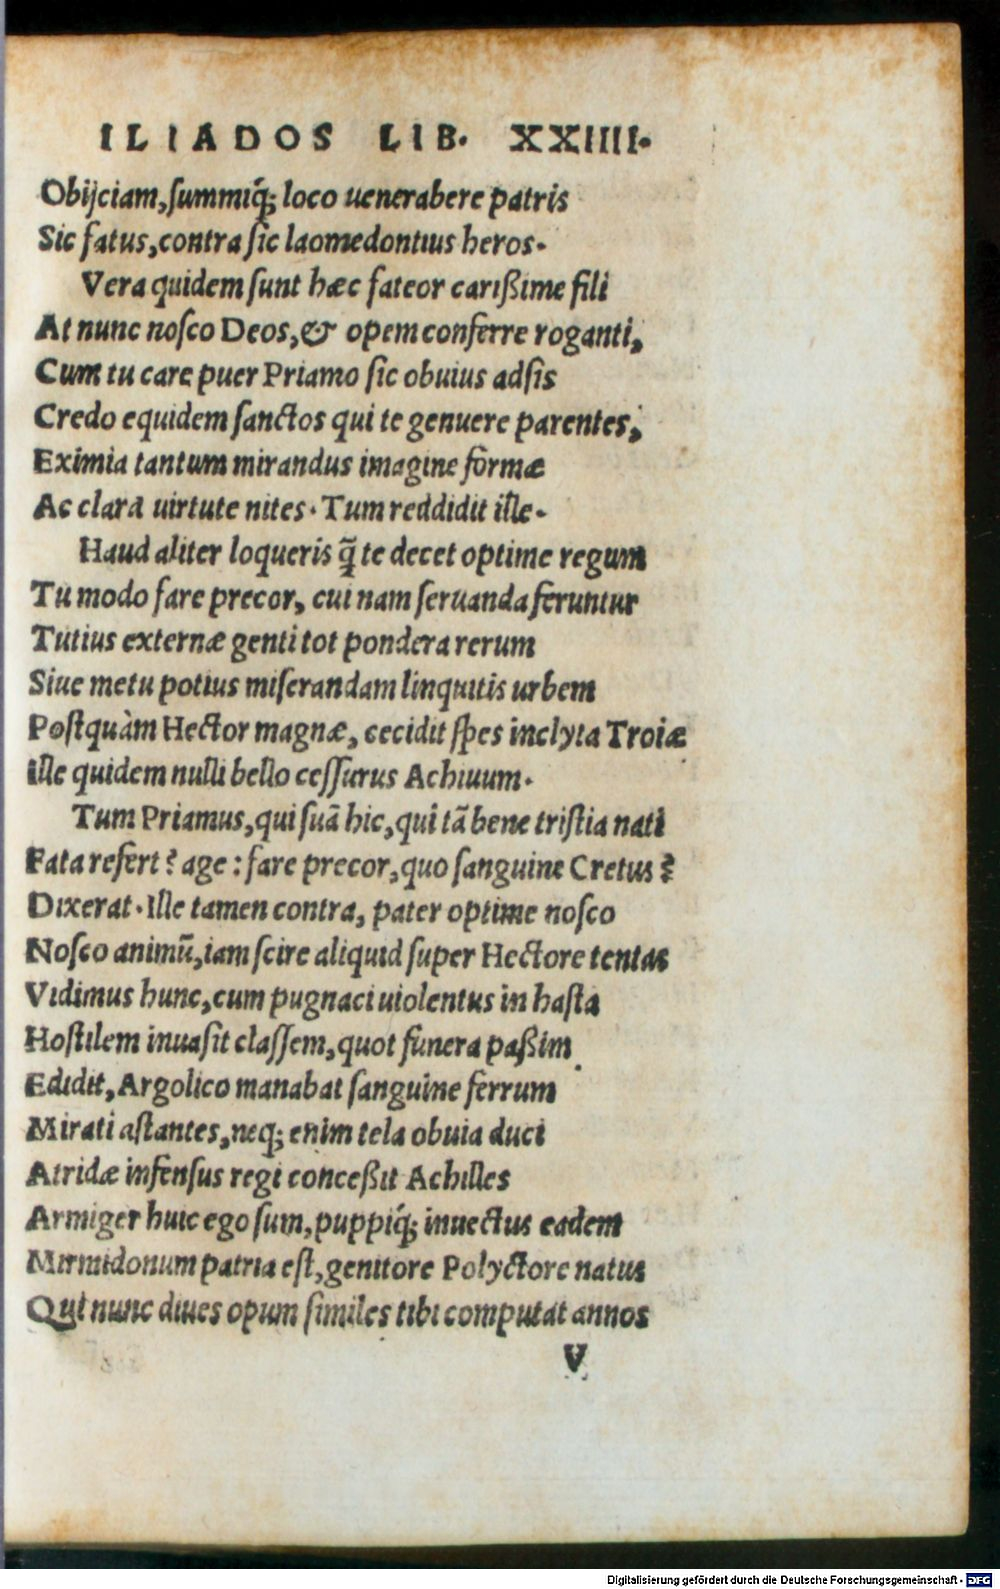 ILIADOS LIB. XXIIII.
Obijciam, summiq́; loco uenerabere patris
Sic fatus, contra sic laomedontius heros.
Vera quidem sunt hæc fateor carißime fili
At nunc nosco Deos, & opem conferre roganti,
Cum tu care puer Priamo sic obuius adsis
Credo equidem sanctos qui te genuere parentes,
Eximia tantum mirandus imagine formæ
Ac clara uirtute nites. Tum reddidit ille.
Haud aliter loqueris q̃ te decet optime regum
Tu modo fare precor, cui nam seruanda feruntur
Tutius externæ genti tot pondera rerum
Siue metu potius miserandam linquitis urbem
Postquàm Hector magnæ, cecidit spes inclyta Troiæ
ille quidem nulli bello cessurus Achiuum.
Tum Priamus, qui suã hic, qui tã bene tristia nati
Fata refert? age: fare precor, quo sanguine Cretus?
Dixerat. Ille tamen contra, pater optime nosco
Nosco animũ, iam scire aliquid super Hectore tentas
Vidimus hunc, cum pugnaci uiolentus in hasta
Hostilem inuasit classem, quot funera paßim
Edidit, Argolico manabat sanguine ferrum
Mirati astantes, neq; enim tela obuia duci
Atridæ infensus regi conceßit Achilles
Armiger huic ego sum, puppiq́; inuectus eadem
Mirmidonum patria est, genitore Polyctore natus
Qui nunc diues opum similes tibi computat annos
V
Digitalisierung gefördert durch die Deutsche Forschungsgemeinschaft - DFG